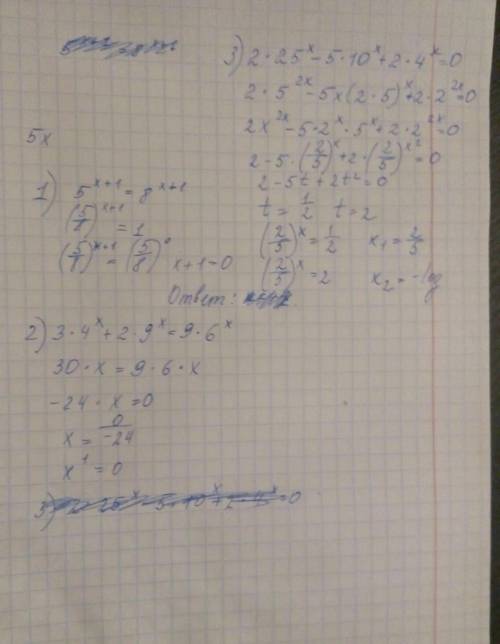 5x
1) 5^(x+1) = 8^(x+1)
(5/8)^(x+1) = 1
(5/8)^(x+1) = (5/8)^0 x+1=0
Ответ:
2) 3·4^x + 2·9^x = 9·6^x
30·x = 9·6·x
-24·x = 0
x = 0/-24
x^1 = 0
3) 2·25^x - 5·10^x + 2·4^x = 0
3) 2·25^x - 5·10^x + 2·4^x = 0
2·5^(2x) - 5x(2·5)^x + 2·2^(2x) = 0
2x^(2x) - 5·2^x·5^x + 2·2^(2x) = 0
2 - 5·(2/5)^x + 2·(2/5)^(x2) = 0
2 - 5t + 2t² = 0
t = 1/2 t = 2
(2/5)^x = 1/2 x₁ = 2/5
(2/5)^x = 2 x₂ = -log